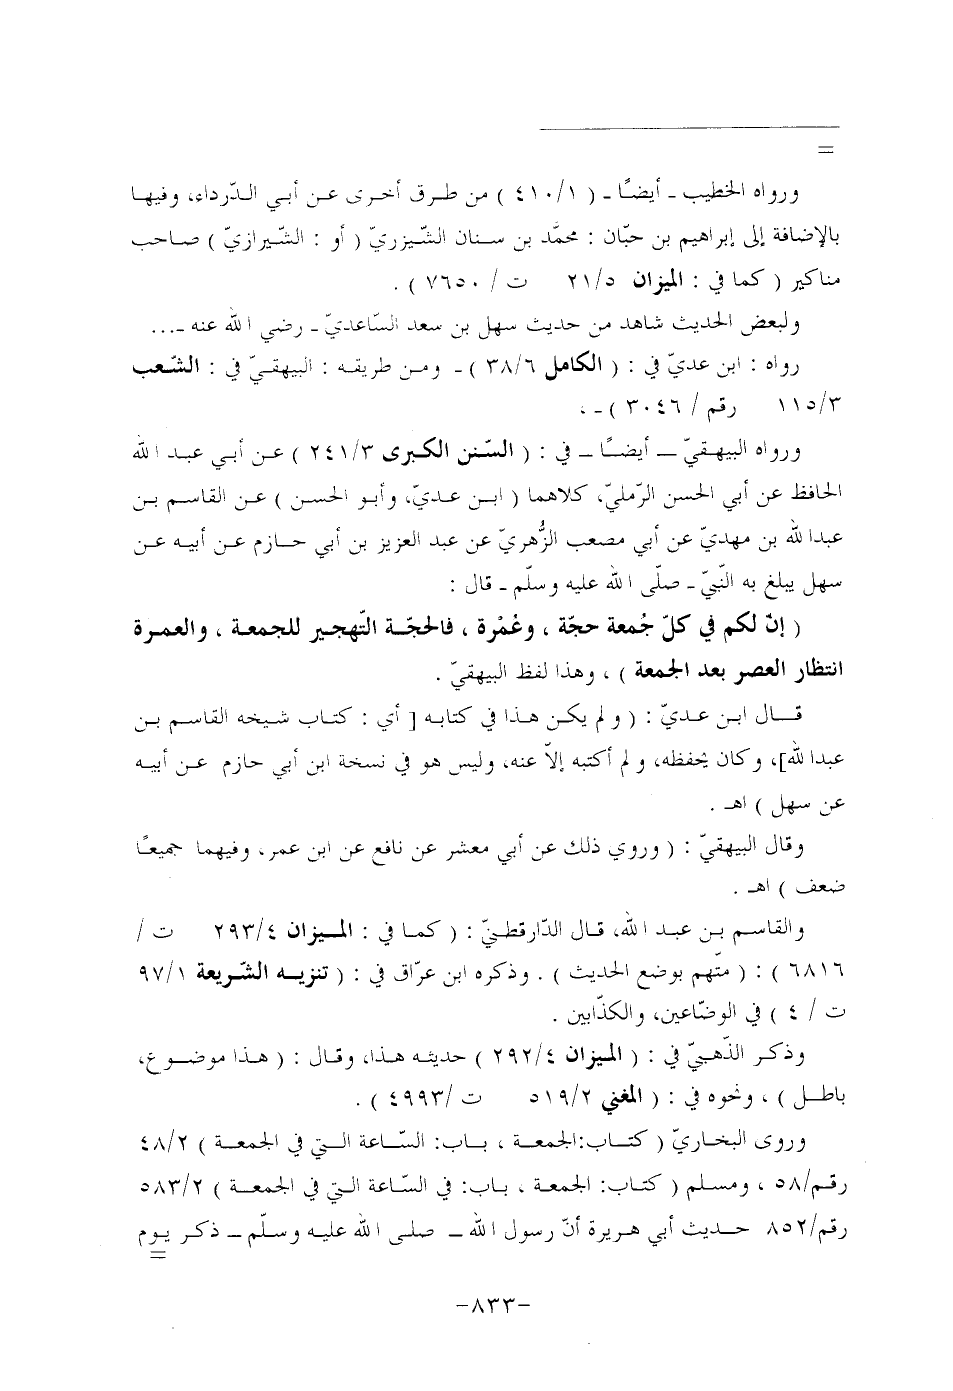 =
ورواه الخطيب ـ أيضًا ـ ( ٤١٠/١ ) من طرق أخرى عن أبي الدّرداء، وفيها
بالإضافة إلى إبراهيم بن حبّان : محمّد بن سنان الشّيزريّ ( أو : الشّيرازيّ ) صاحب
مناكير ( كما في : الميزان ٢١/٥ ت / ٧٦٥٠ ) .
ولبعض الحديث شاهد من حديث سهل بن سعد السّاعديّ ـ رضي الله عنه ـ...
رواه : ابن عديّ في : ( الكامل ٣٨/٦ ) ـ ومن طريقه : البيهقيّ في : الشّعب
١١٥/٣ رقم / ٣٠٤٦ ) ـ ،
ورواه البيهقيّ ـ أيضًا ـ في : ( السّنن الكبرى ٢٤١/٣ ) عن أبي عبد الله
الحافظ عن أبي الحسن الرّمليّ، كلاهما ( ابن عديّ، وأبو الحسن ) عن القاسم بن
عبدالله بن مهديّ عن أبي مصعب الزُّهريّ عن عبد العزيز بن أبي حازم عن أبيه عن
سهل يبلغ به النّبيّ ـ صلّى الله عليه وسلّم ـ قال :
( إنّ لكم في كلّ جُمعة حجّة ، وعُمْرة ، فالحجّة التّهجير للجمعة ، والعمرة
انتظار العصر بعد الجمعة ) ، وهذا لفظ البيهقيّ .
قال ابن عديّ : ( ولم يكن هذا في كتابه [ أي : كتاب شيخه القاسم بن
عبدالله]، وكان يحفظه، ولم أكتبه إلاّ عنه، وليس هو في نسخة ابن أبي حازم عن أبيه
عن سهل ) اهـ .
وقال البيهقيّ : ( وروي ذلك عن أبي معشر عن نافع عن ابن عمر، وفيهما جميعًا
ضعف ) اهـ .
والقاسم بن عبد الله، قال الدّارقطنيّ : ( كما في : الميزان ٢٩٣/٤ ت /
٦٨١٦ ) : ( متّهم بوضع الحديث ) . وذكره ابن عرّاق في : ( تنزيه الشّريعة ٩٧/١
ت / ٤ ) في الوضّاعين، والكذّابين .
وذكر الذّهبيّ في : ( الميزان ٢٩٢/٤ ) حديثه هذا، وقال : ( هذا موضوع،
باطل ) ، ونحوه في : ( المغني ٥١٩/٢ ت /٤٩٩٣ ) .
وروى البخاريّ ( كتاب:الجمعة ، باب: السّاعة التي في الجمعة ) ٤٨/٢
رقم/٥٨ ، ومسلم ( كتاب: الجمعة ، باب: في السّاعة التي في الجمعة ) ٥٨٣/٢
رقم/٨٥٢ حديث أبي هريرة أنّ رسول الله ـ صلى الله عليه وسلّم ـ ذكر يوم
=
-٨٣٣-